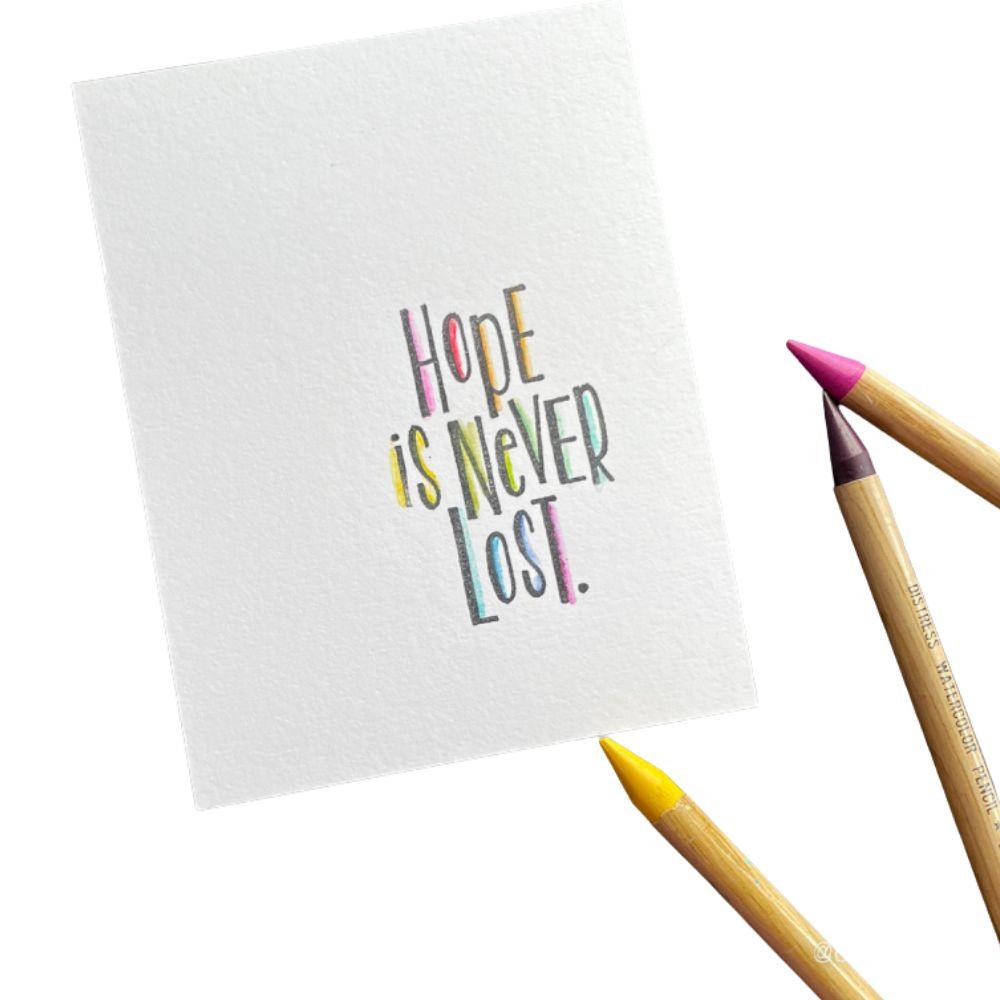 HOPE
iS NeVER
LoST.
DISTRESS WATERCOLOR PENCIL